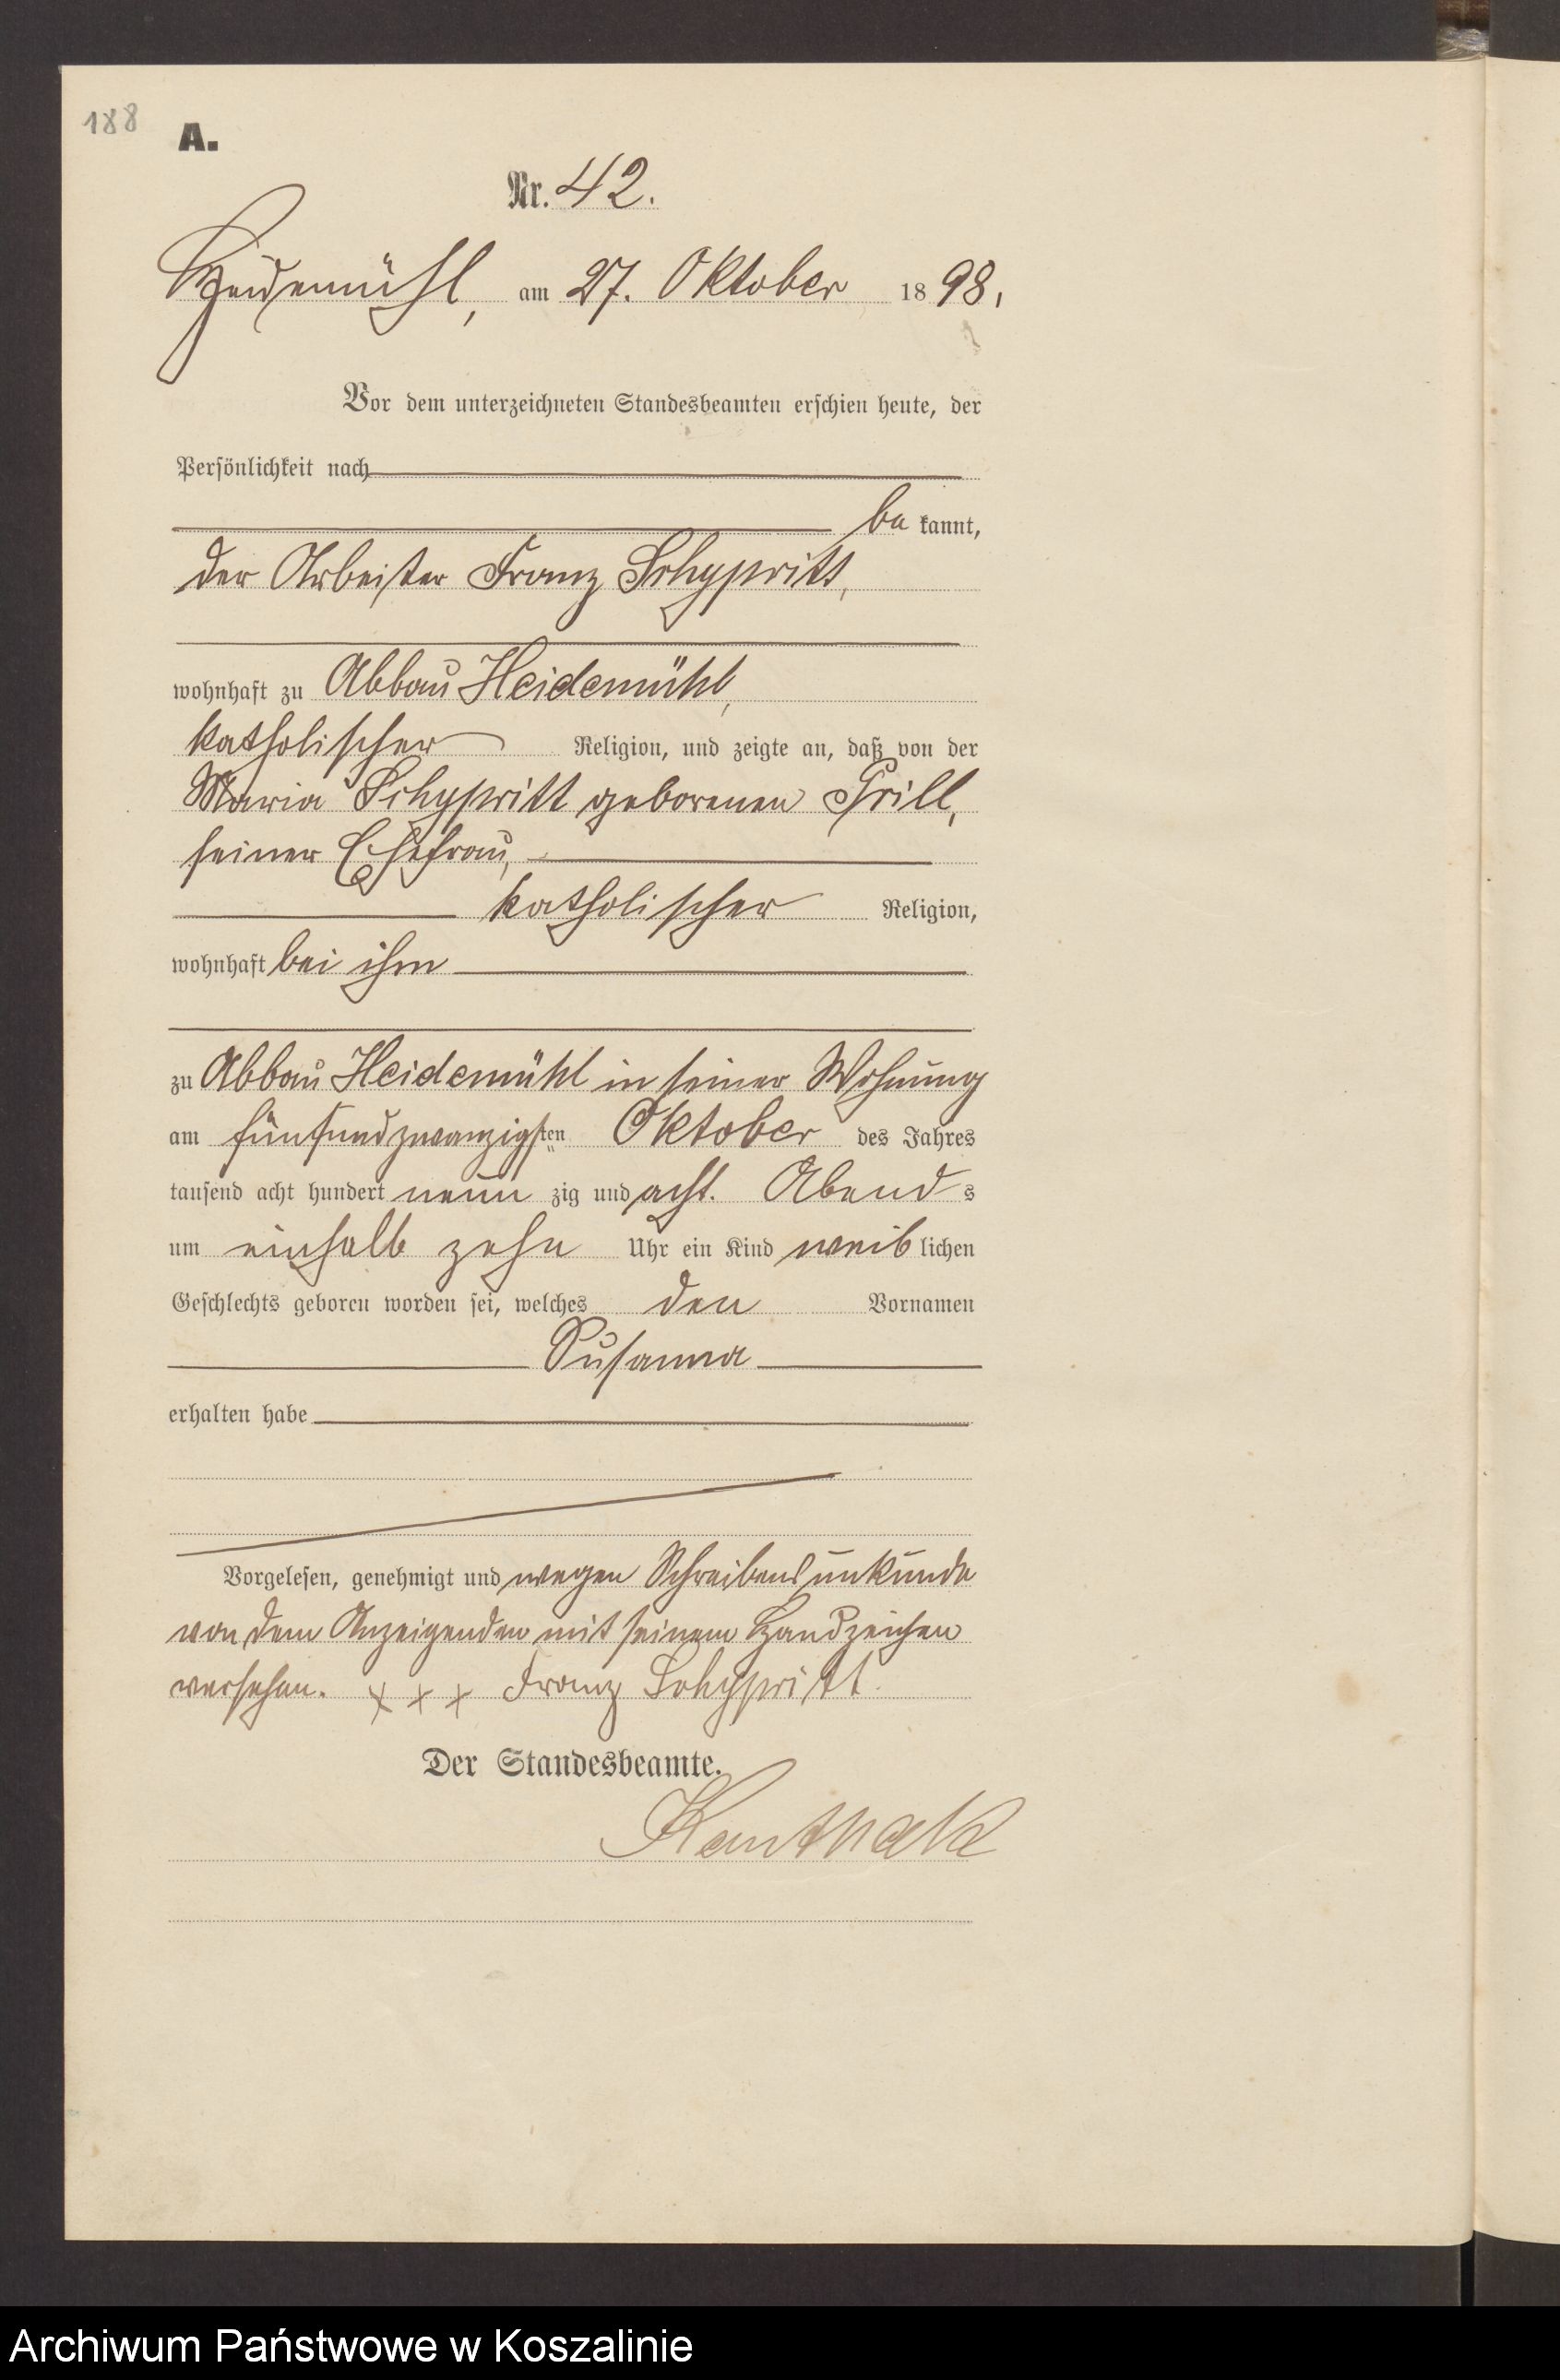 188
A.
Nr. 42.
Heidemühl, am 27. Oktober 1898.
Vor dem unterzeichneten Standesbeamten erschien heute, der
Persönlichkeit nach
be kannt,
der Arbeiter Franz Schypritt,
wohnhaft zu Abbau Heidemühl,
katholischer Religion, und zeigte an, daß von der
Maria Schypritt geborenen Grill,
seiner Ehefrau,
katholischer Religion,
wohnhaft bei ihm
zu Abbau Heidemühl in seiner Wohnung
am fünfundzwanzigsten Oktober des Jahres
tausend acht hundert neun zig und acht. Abend s
um einhalb zehn Uhr ein Kind weib lichen
Geschlechts geboren worden sei, welches den Vornamen
Susanna
erhalten habe
Vorgelesen, genehmigt und wegen Schreibensunkunde
von dem Anzeigenden mit seinem Handzeichen
versehen. + + + Franz Schypritt.
Der Standesbeamte.
Kanthak
Archiwum Państwowe w Koszalinie